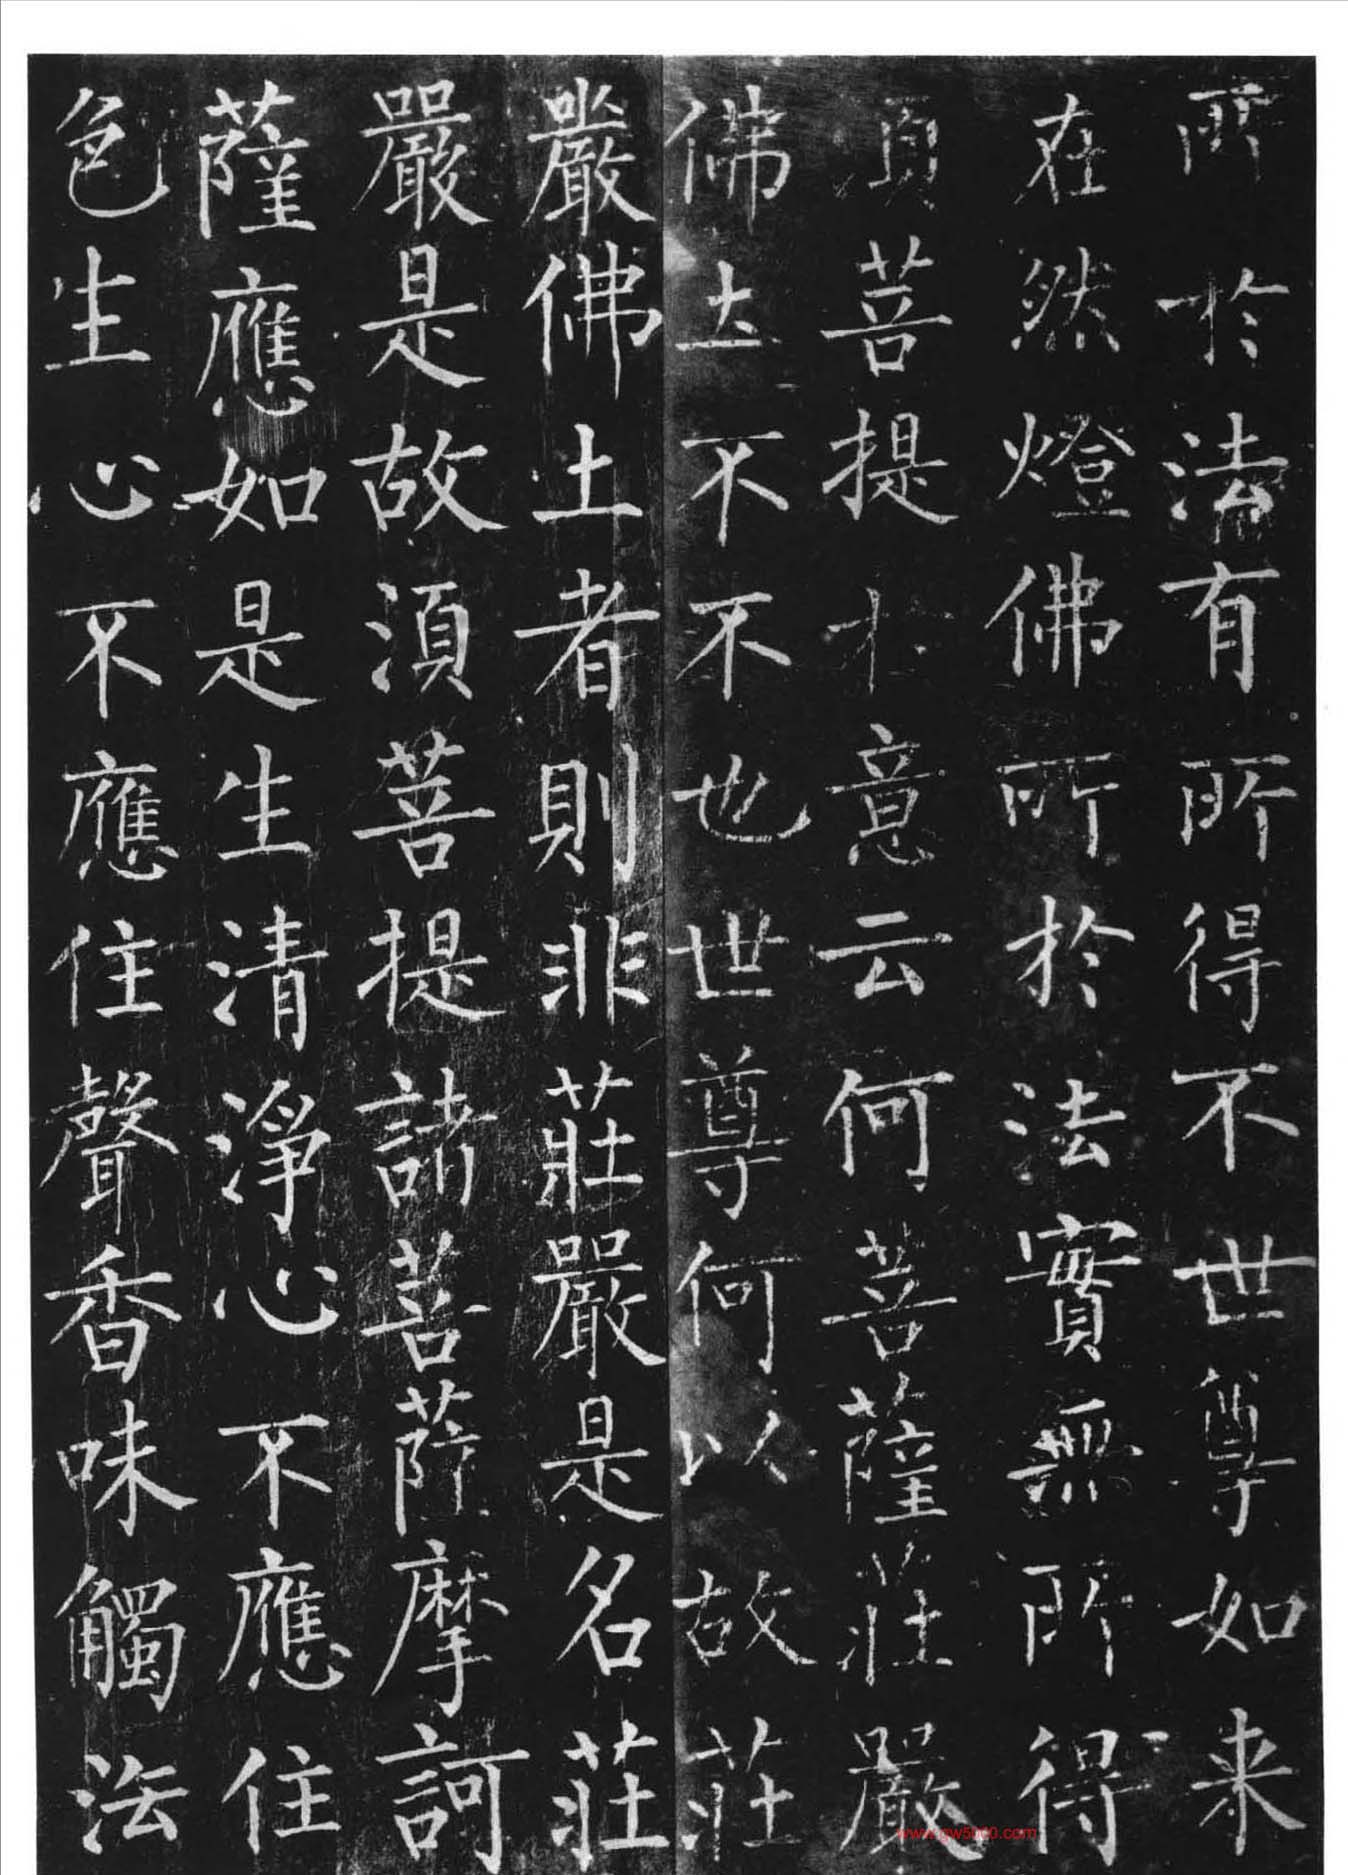 所於法有所得不世尊如来
在然燈佛所於法實無所得
須菩提於意云何菩薩莊嚴
佛土不不也世尊何以故莊
嚴佛土者則非莊嚴是名莊
嚴是故須菩提諸菩薩摩訶
薩應如是生清淨心不應住
色生心不應住聲香味觸法
www.gw5000.com